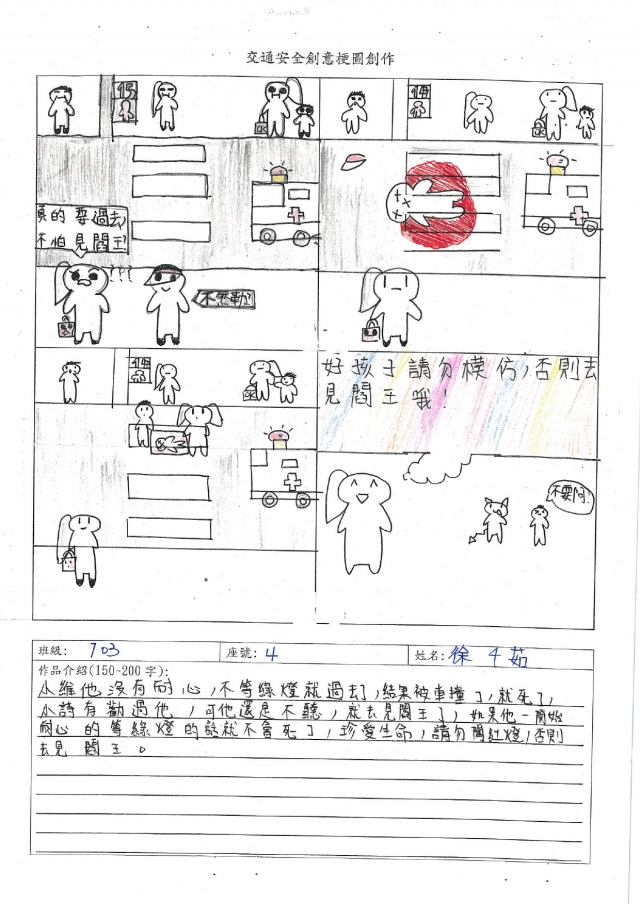 交通安全創意梗圖創作
15
真的要過去?
不怕見閻王!
???
不然勒?
14
14
好孩子請勿模仿,否則去
見閻王哦!
不要阿!
班級: 703
座號: 4
姓名: 徐千茹
作品介紹(150~200字):
小維他沒有耐心,不等綠燈就過去了,結果被車撞了,就死了,
小詩有勸過他,可他還是不聽,就去見閻王了,如果他一開始
耐心的等綠燈的話就不會死了,珍愛生命,請勿闖紅燈,否則
去見閻王。